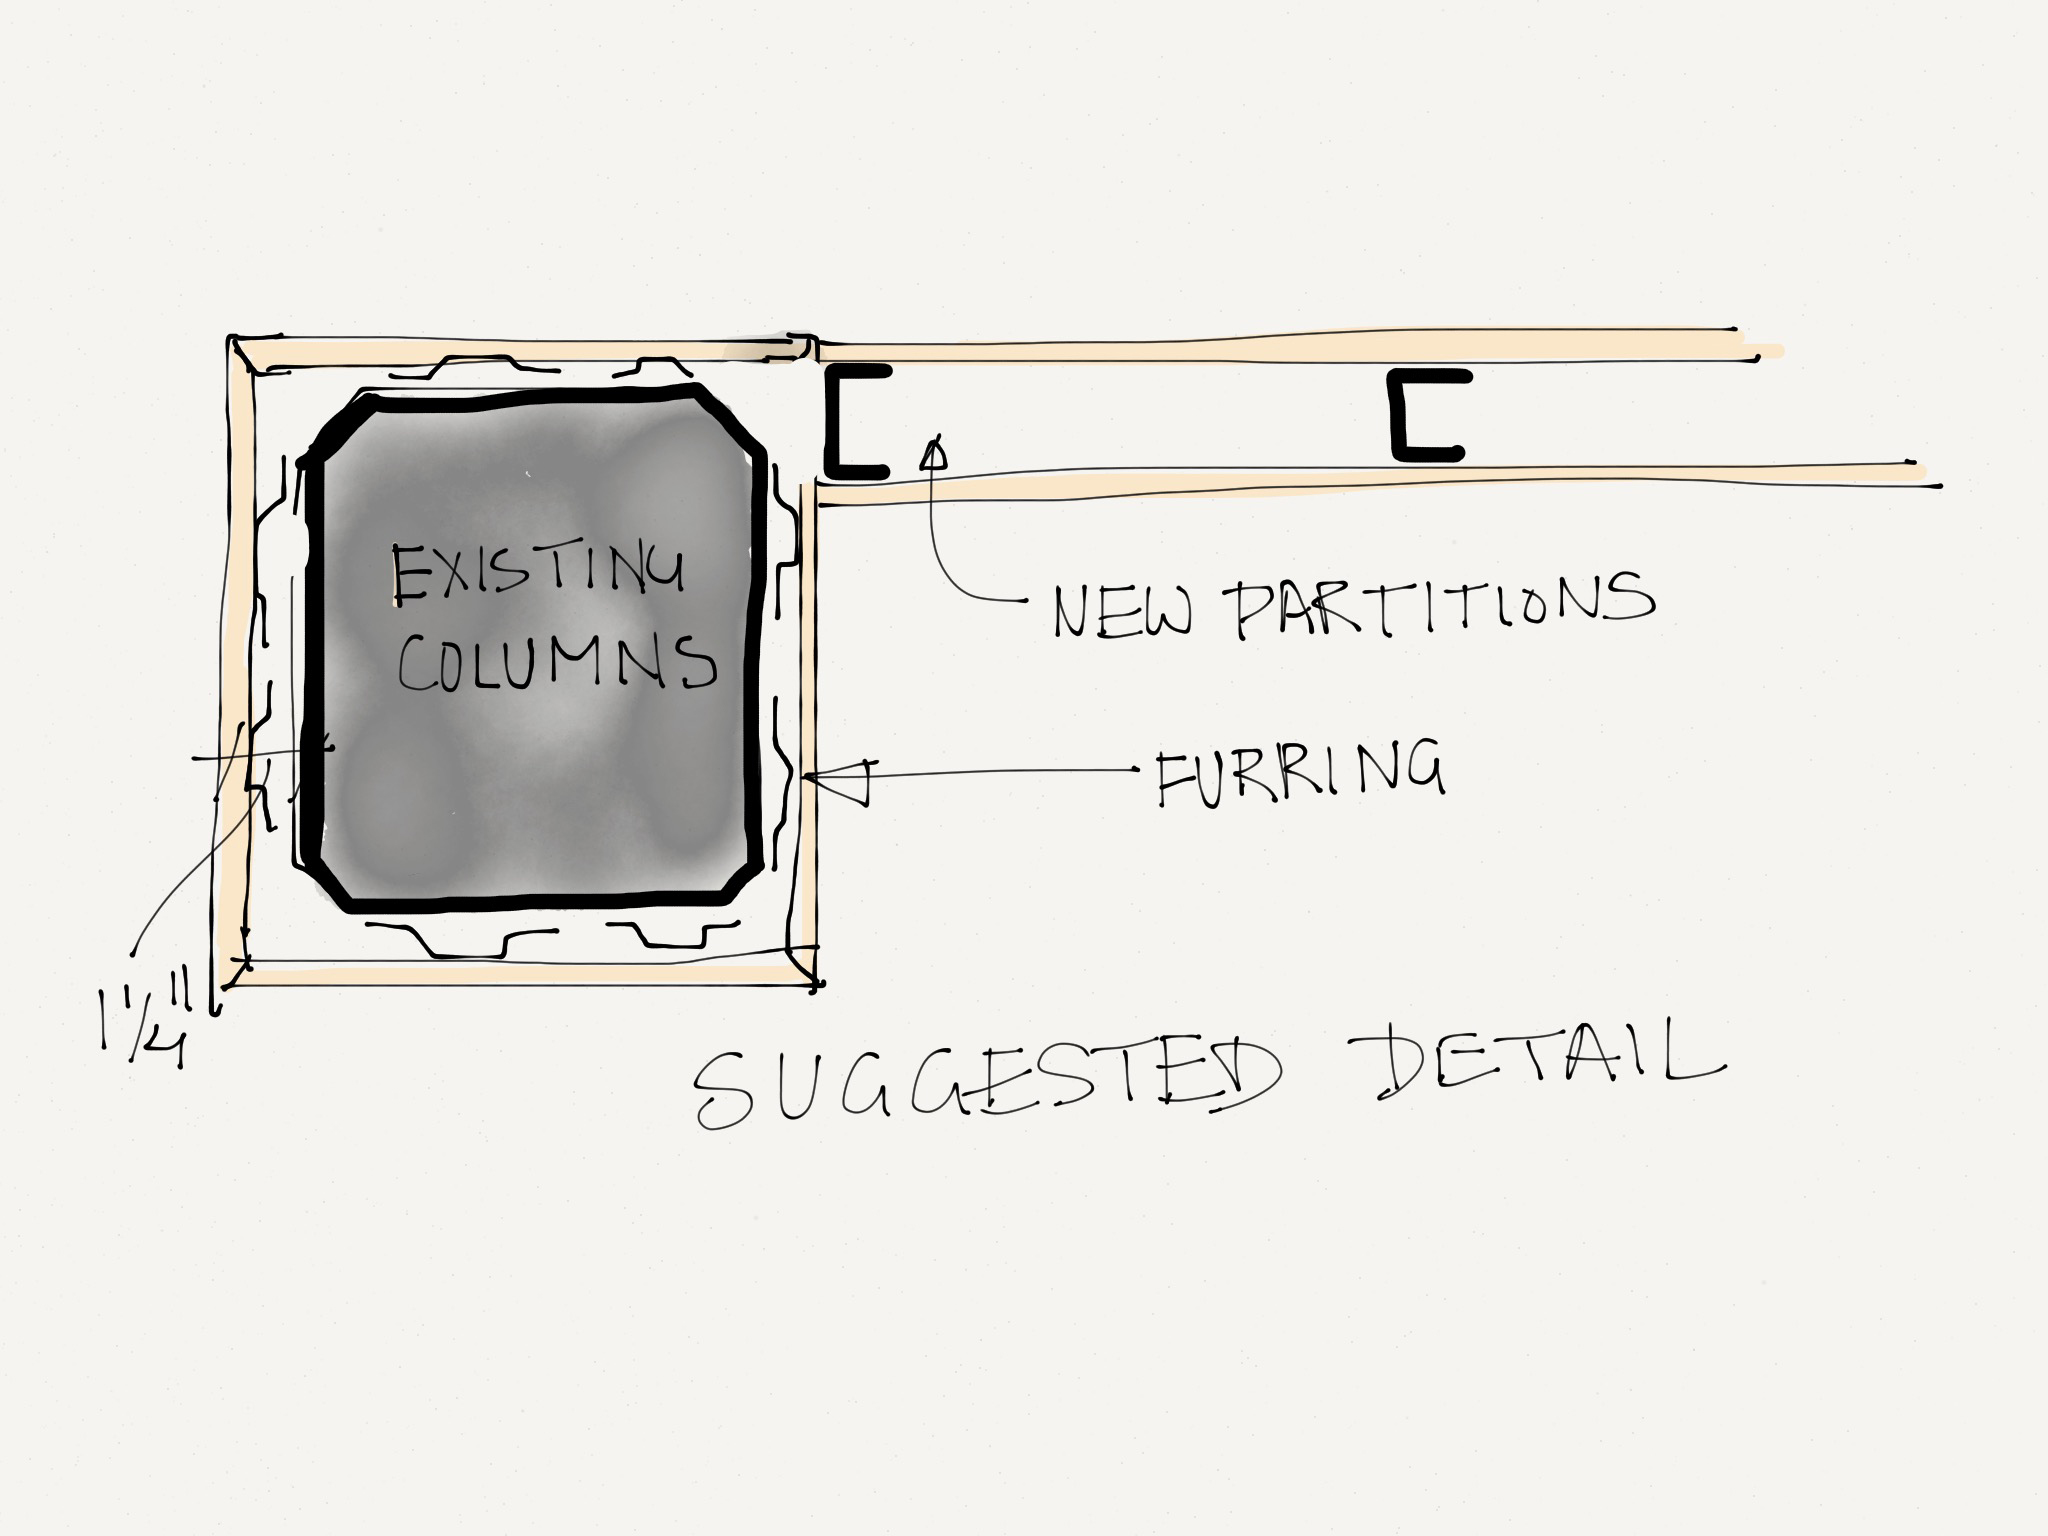 EXISTING
COLUMNS
NEW PARTITIONS
FURRING
1 1/4"
SUGGESTED DETAIL